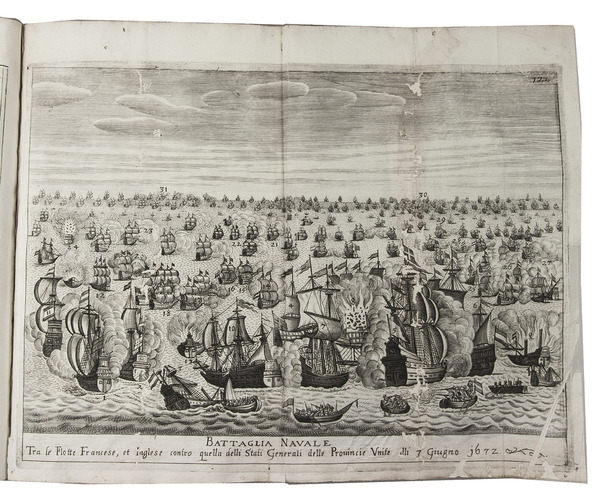 31
30
23
22
21
BATTAGLIA NAVALE
Tra le Flotte Francese, et inglese contro quella delli Stati Generali delle Provincie Unite alli 7 Giugno 1672.